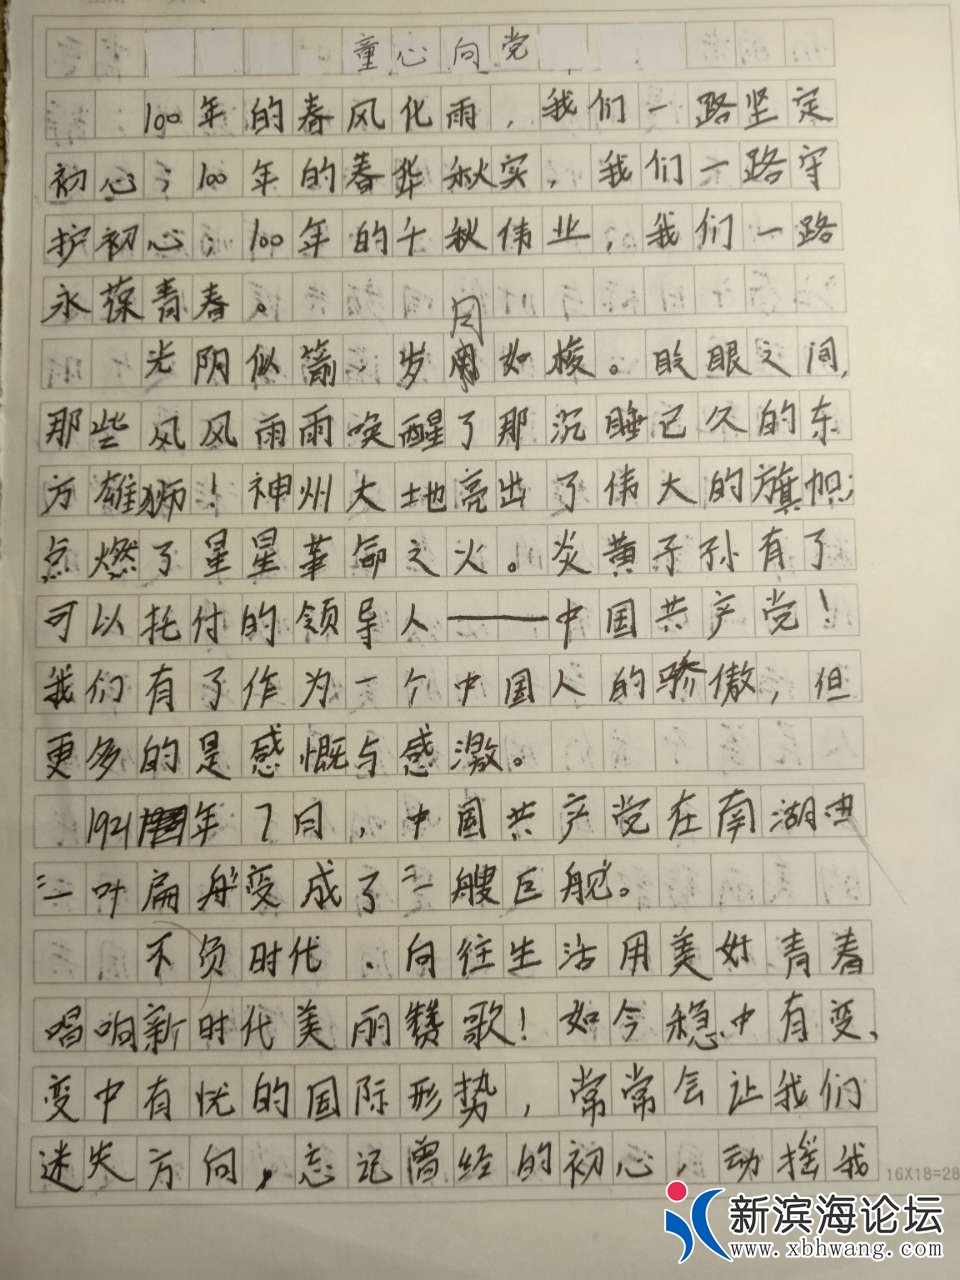 童心向党
100年的春风化雨，我们一路坚定
初心；100年的春华秋实，我们一路守
护初心；100年的千秋伟业，我们一路
永葆青春。
月
光阴似箭，岁如梭。眨眼之间，
那些风风雨雨唤醒了那沉睡已久的东
方雄狮！神州大地亮出了伟大的旗帜；
点燃了星星革命之火。炎黄子孙有了
可以托付的领导人——中国共产党！
我们有了作为一个中国人的骄傲，但
更多的是感慨与感激。
1921年7月，中国共产党在南湖由
"一叶扁舟"变成了"一艘巨舰"。
不负时代，向往生活用美好青春
唱响新时代美丽赞歌！如今稳中有变、
变中有忧的国际形势，常常会让我们
迷失方向，忘记曾经的初心，动摇我
16X18=28
新滨海论坛
www.xbhwang.com